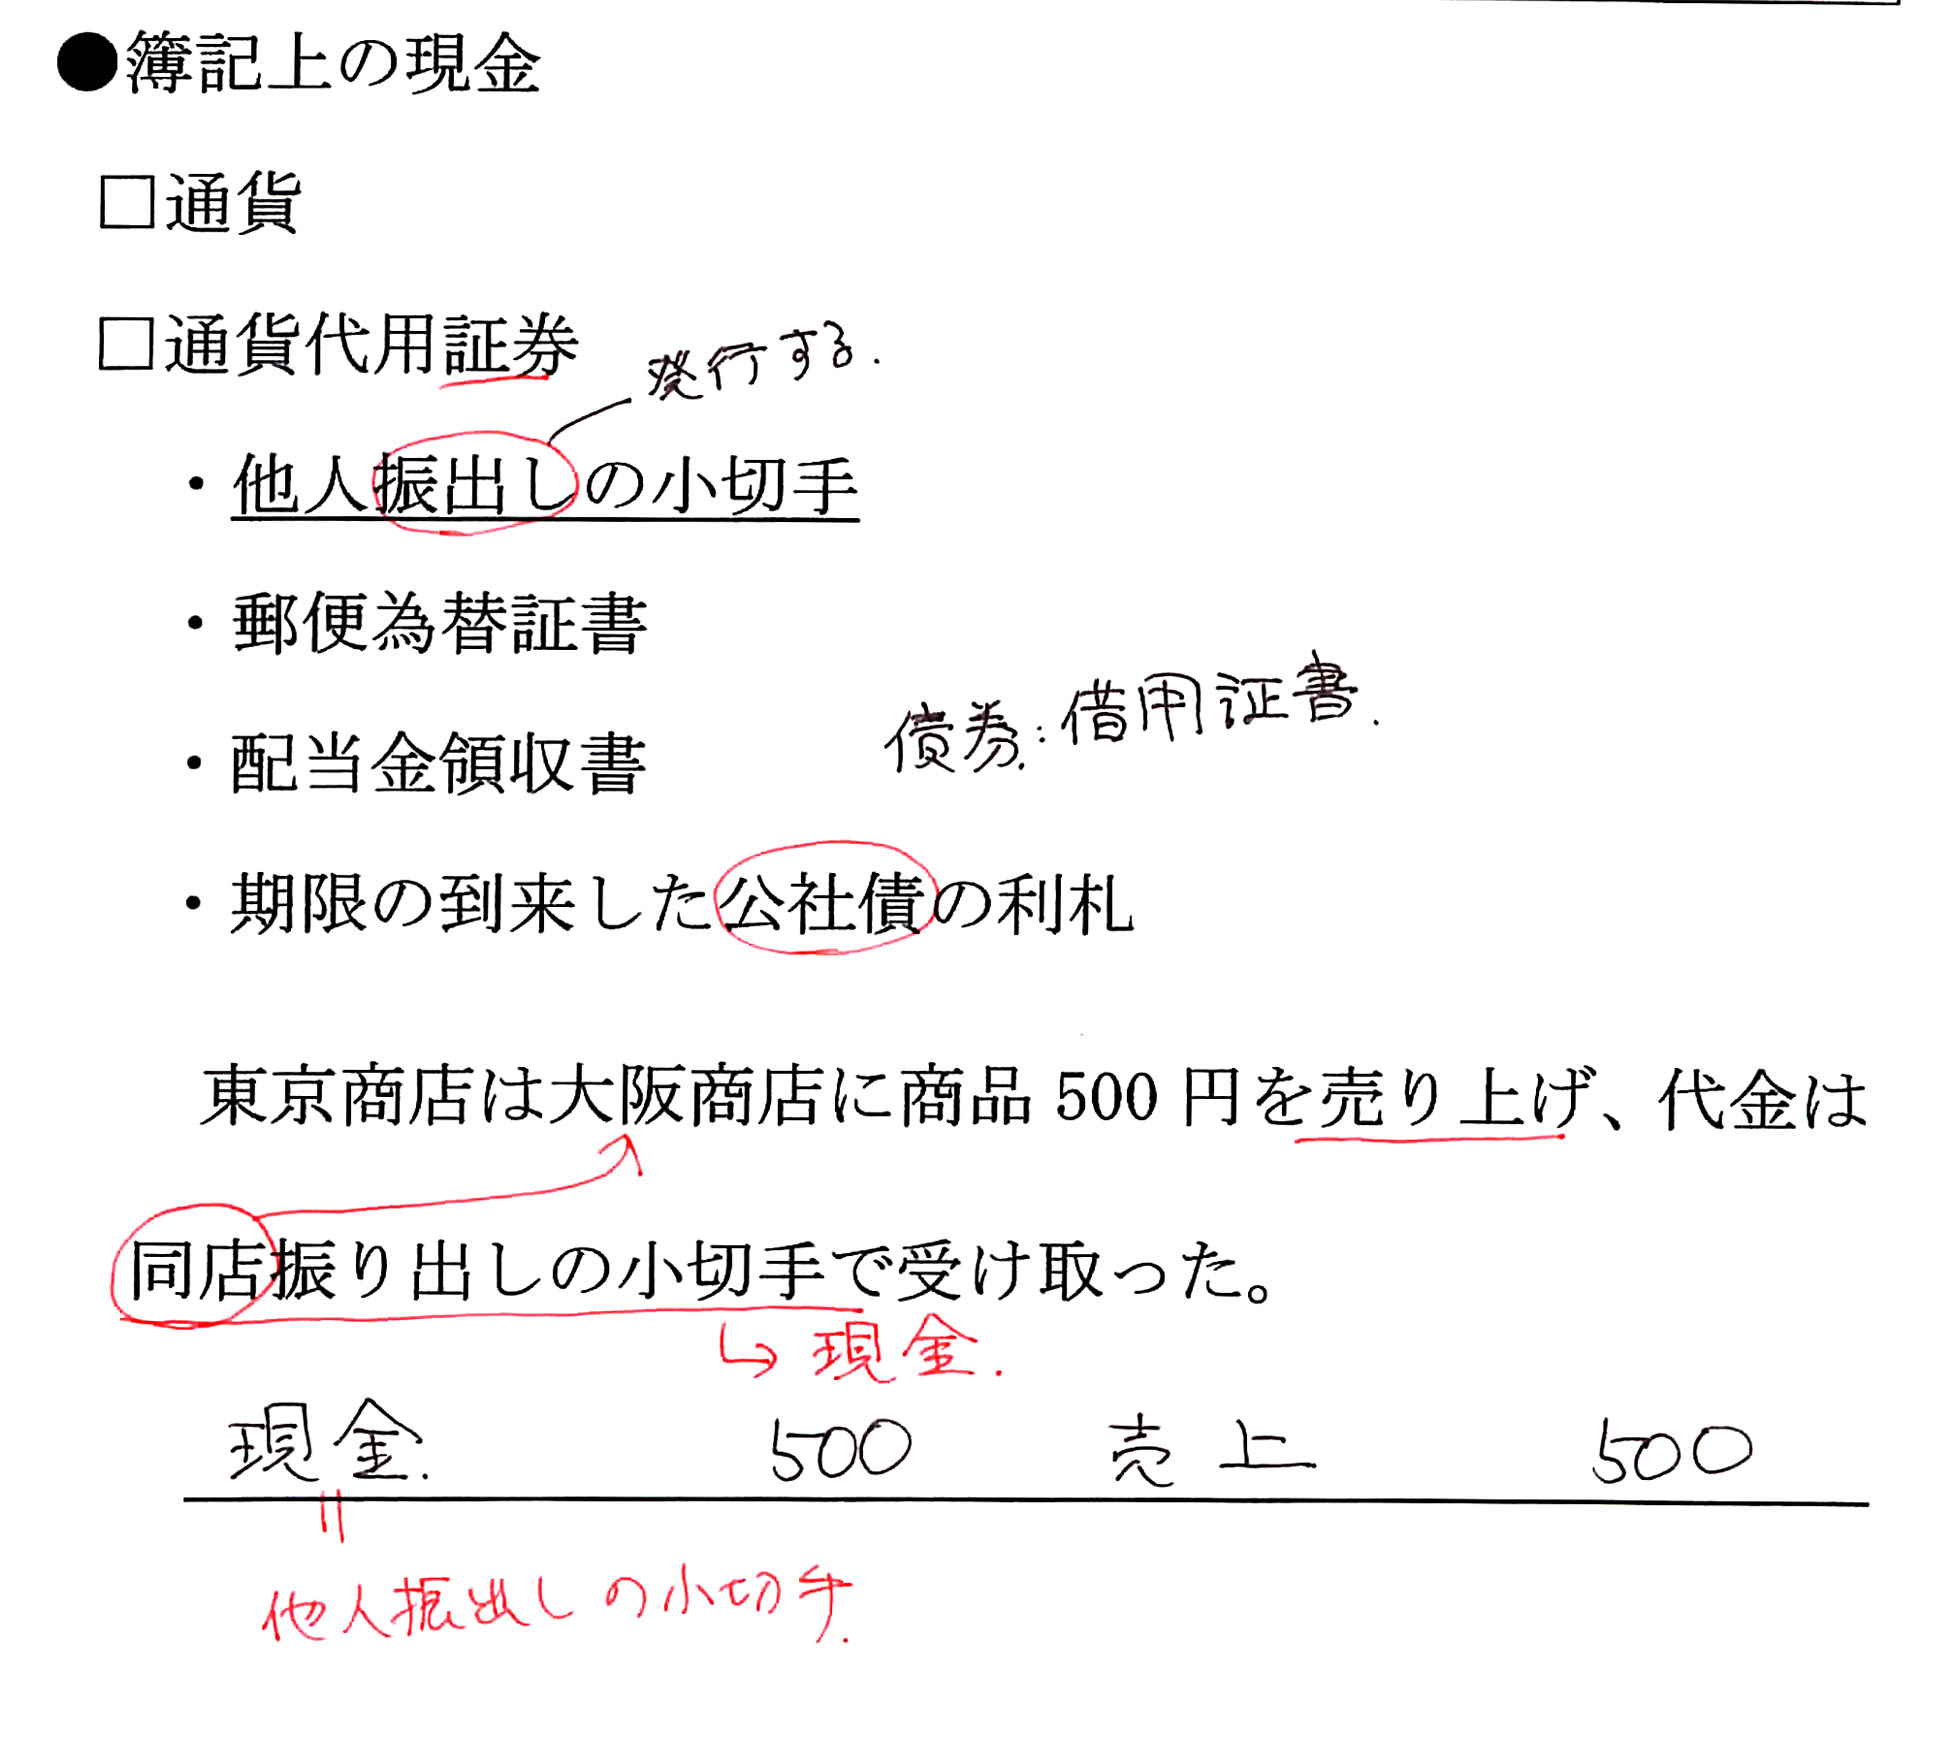 ●簿記上の現金
□通貨
□通貨代用証券
発行する.
・他人振出しの小切手
・郵便為替証書
債券:借用証書.
・配当金領収書
・期限の到来した公社債の利札
東京商店は大阪商店に商品 500 円を売り上げ、代金は
同店振り出しの小切手で受け取った。
↳ 現金.
現金. 500 売上 500
||
他人振出しの小切手.